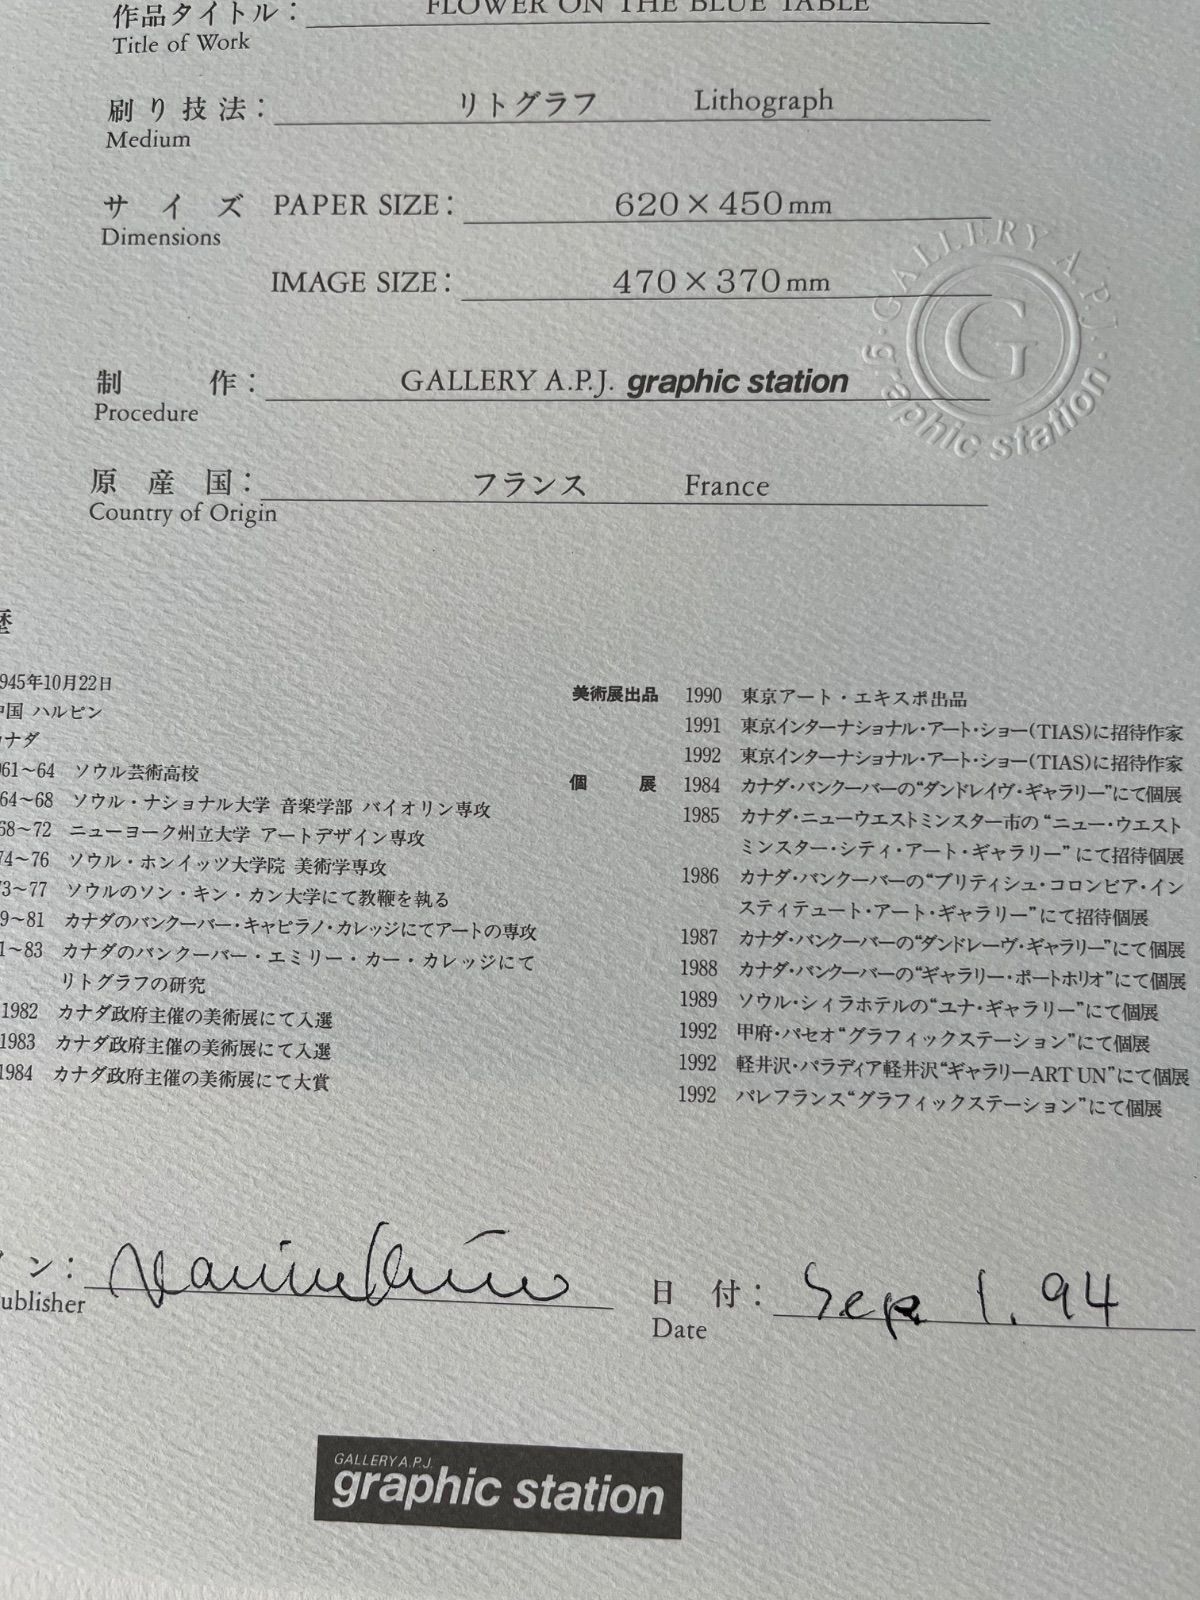 作品タイトル： FLOWER ON THE BLUE TABLE
Title of Work
刷り技法： リトグラフ Lithograph
Medium
サイズ PAPER SIZE： 620×450mm
Dimensions
IMAGE SIZE： 470×370mm
GALLERY A.P.J. graphic station
G
制作： GALLERY A.P.J. graphic station
Procedure
原産国： フランス France
Country of Origin
歴
945年10月22日
中国 ハルピン
カナダ
61〜64 ソウル芸術高校
64〜68 ソウル・ナショナル大学 音楽学部 バイオリン専攻
68〜72 ニューヨーク州立大学 アートデザイン専攻
74〜76 ソウル・ホンイッツ大学院 美術学専攻
73〜77 ソウルのソン・キン・カン大学にて教鞭を執る
9〜81 カナダのバンクーバー・キャピラノ・カレッジにてアートの専攻
1〜83 カナダのバンクーバー・エミリー・カー・カレッジにて
リトグラフの研究
1982 カナダ政府主催の美術展にて入選
1983 カナダ政府主催の美術展にて入選
1984 カナダ政府主催の美術展にて大賞
美術展出品 1990 東京アート・エキスポ出品
1991 東京インターナショナル・アート・ショー(TIAS)に招待作家
1992 東京インターナショナル・アート・ショー(TIAS)に招待作家
個展 1984 カナダ・バンクーバーの“ダンドレイヴ・ギャラリー”にて個展
1985 カナダ・ニューウエストミンスター市の“ニュー・ウエスト
ミンスター・シティ・アート・ギャラリー”にて招待個展
1986 カナダ・バンクーバーの“ブリティシュ・コロンビア・イン
スティテュート・アート・ギャラリー”にて招待個展
1987 カナダ・バンクーバーの“ダンドレーヴ・ギャラリー”にて個展
1988 カナダ・バンクーバーの“ギャラリー・ポートホリオ”にて個展
1989 ソウル・シィラホテルの“ユナ・ギャラリー”にて個展
1992 甲府・パセオ“グラフィックステーション”にて個展
1992 軽井沢・パラディア軽井沢“ギャラリーART UN”にて個展
1992 パレフランス“グラフィックステーション”にて個展
イン：
ublisher
日付： Sep 1. 94
Date
GALLERY A.P.J.
graphic station